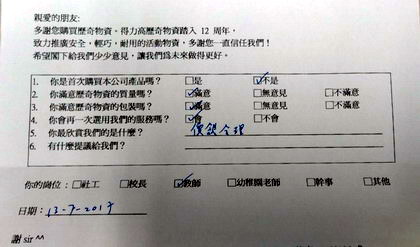 親愛的朋友:
多謝您購買歷奇物資。得力高歷奇物資踏入 12 周年,
致力推廣安全,輕巧,耐用的活動物資,多謝您一直信任我們!
希望閣下給我們少少意見,讓我們為未來做得更好。
1. 你是首次購買本公司產品嗎? □是 ☑不是
2. 你滿意歷奇物資的質量嗎? ☑滿意 □無意見 □不滿意
3. 你滿意歷奇物資的包裝嗎? ☑滿意 □無意見 □不滿意
4. 你會再一次選用我們的服務嗎? ☑會 □不會
5. 你最欣賞我們的是什麼? 價錢合理
6. 有什麼提議給我們?
你的崗位: □社工 □校長 ☑教師 □幼稚園老師 □幹事 □其他
日期: 13-7-2017
謝 sir ^^